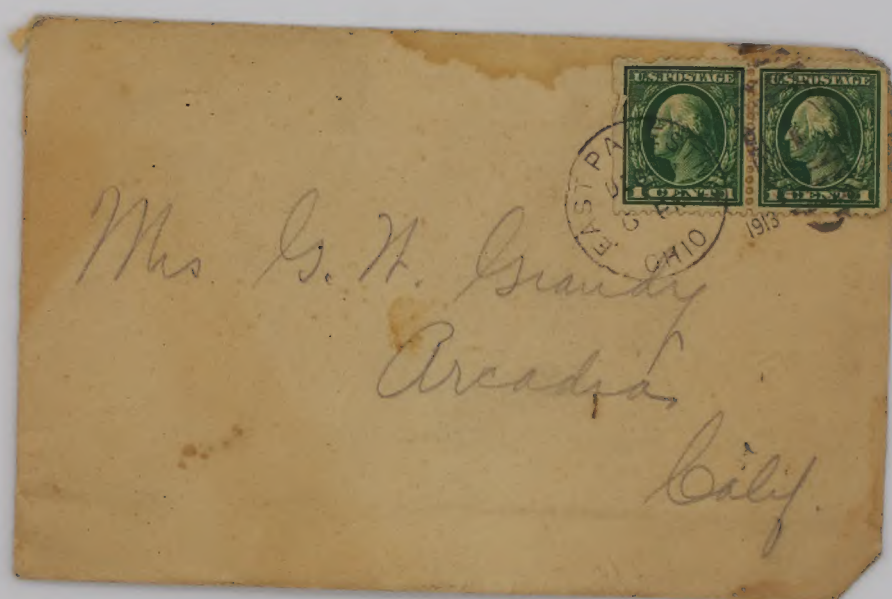 U.S. POSTAGE U.S. POSTAGE
1 CENT 1 1 CENT 1
EAST PA
OHIO
1913
Mrs G. H. Grandy
Arcadia,
Calif.